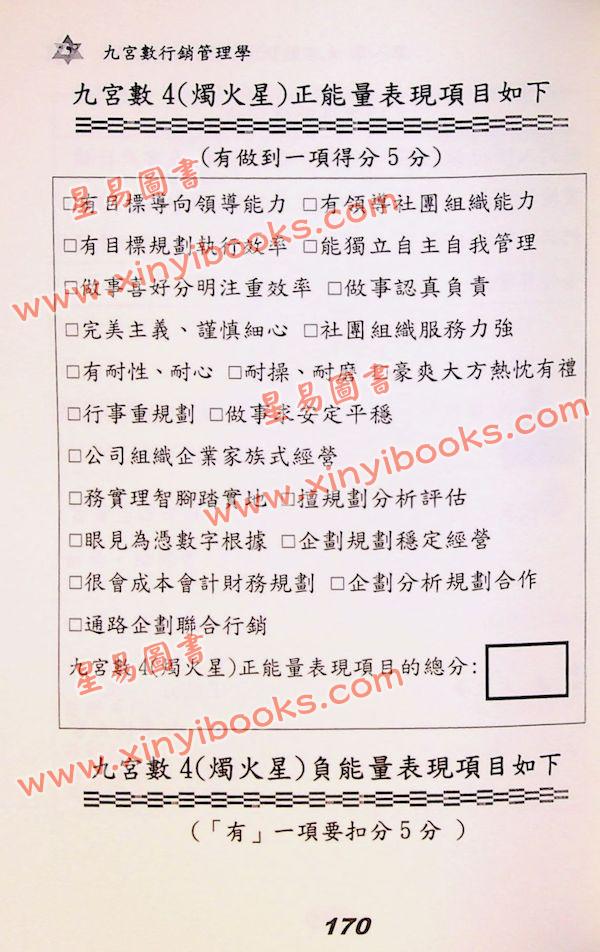 九宮數行銷管理學
九宮數4(燭火星)正能量表現項目如下
(有做到一項得分5分)
□有目標導向領導能力 □有領導社團組織能力
□有目標規劃執行效率 □能獨立自主自我管理
□做事喜好分明注重效率 □做事認真負責
□完美主義、謹慎細心 □社團組織服務力強
□有耐性、耐心 □耐操、耐磨 □豪爽大方熱忱有禮
□行事重規劃 □做事求安定平穩
□公司組織企業家族式經營
□務實理智腳踏實地 □擅規劃分析評估
□眼見為憑數字根據 □企劃規劃穩定經營
□很會成本會計財務規劃 □企劃分析規劃合作
□通路企劃聯合行銷
九宮數4(燭火星)正能量表現項目的總分:
九宮數4(燭火星)負能量表現項目如下
(「有」一項要扣分5分 )
170
星易圖書
www.xinyibooks.com
星易圖書
www.xinyibooks.com
星易圖書
www.xinyibooks.com